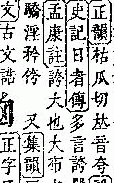 正韻枯瓜切𠀤音夸
史記日者傳多言誇
孟康註誇大也布
驕淫矜侉 又集韻
文古文誇 正字